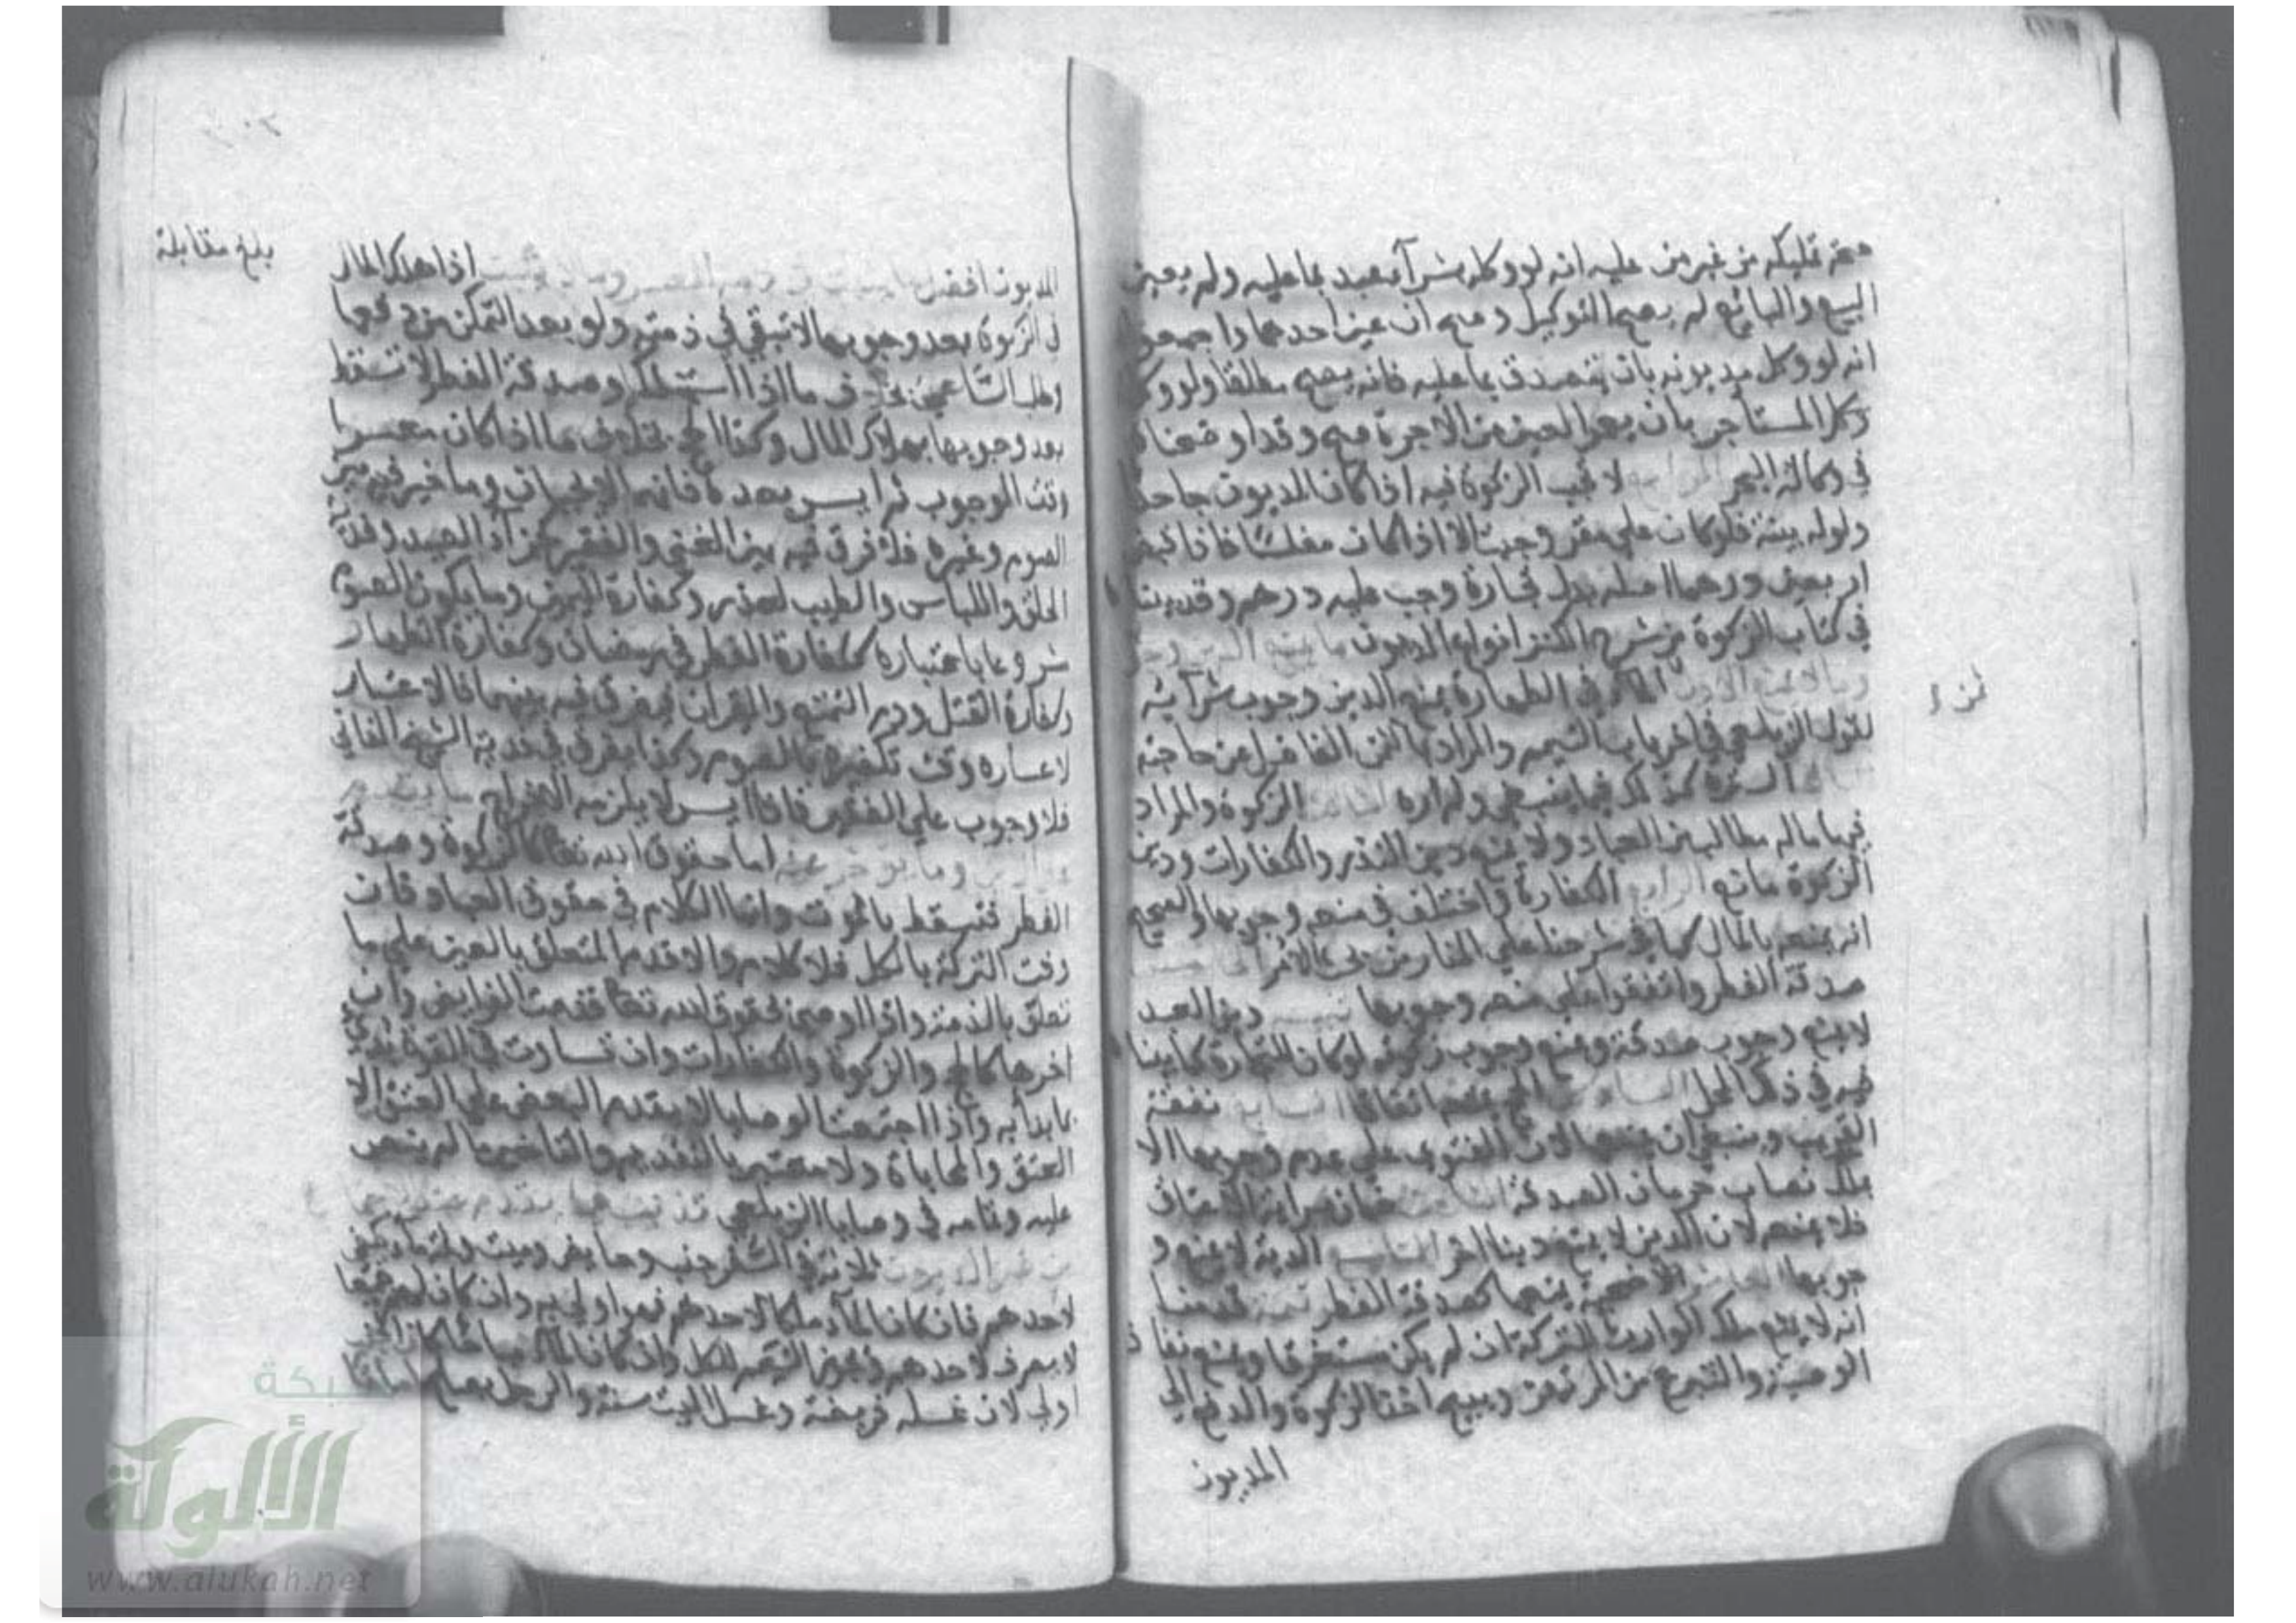 صحة تمليكه من غير من عليه انه لو وكله بشرآء عبد بما عليه ولم يعين
المبيع والبائع لم يصح التوكيل وصح ان عين احدهما واجمعوا
انه لو وكل مديونه بان يتصدق بما عليه فانه يصح مطلقا ولو وكل
وكل المستأجر بان يعمر العين من الاجرة صح وقد اوضحناه
في وكالة البحر لا تجب الزكوة فيه اذا كان المديون جاحدا
ولو له بينة فلو كان على مقر وجبت الا اذا كان مفلسا فاذا قبض
اربعين درهما اصله بدل تجارة وجب عليه درهم وقد بينا
في كتاب الزكوة من شرح الكنز انواع الديون ما يمنع الدين وجو
وما لا يمنع الاول الماء في الطهارة يمنع الدين وجوب شرآئه
لقول الزيلعي في اخر باب التيمم والمراد بالثمن الفاضل عن حاجته
السترة كذلك فيما ينبغي ولم اره الثالث الزكوة والمراد
فيها ما له مطالب من العباد ولا يمنع دين النذر والكفارات ودين
الزكوة مانع الرابع الكفارة واختلف في منعه وجوبها والصحيح
انه يمنع بالمال كما في شرحنا على المنار من بحث الامر الخامس
صدقة الفطر واتفقوا على منعه وجوبها تنبيه دين العبد
لا يمنع وجوب صدقة ويمنع وجوب زكوته لو كان للتجارة كما بينا
فيه في ذلك المحل السادس الحج يمنعه اتفاقا السابع نفقة
القريب وينبغي ان يمنعها لان الفتوى على عدم وجوبها الا
بملك نصاب حرمان الصدقة الثامن ضمان سراية الاعتاق
فلا يمنعه لان الدين لا يمنع دينا اخر التاسع الدية لا يمنع و
جوبها العاشر الاضحية يمنعها كصدقة الفطر تتمة قدمنا
انه لا يمنع ملك الوارث للتركة ان لم يكن مستغرقا ويمنع نفاذ
الوصية والتبرع من المرتهن ويبيح اخذ الزكوة والدفع الى
المديون
المديون افضل اذا هلك المال
في الزكوة بعد وجوبها لا تبقى في ذمته ولو بعد التمكن من دفعها
وطلب الساعي بخلاف ما اذا استهلكه وصدقة الفطر لا تسقط
بعد وجوبها بهلاك المال وكذا الحج بخلاف ما اذا كان معسرا
وقت الوجوب ثم ايسر بعده فانه لا وما خير فيه بين
الصوم وغيره فلا فرق فيه بين الغني والفقير كجزاء الصيد وفدية
الحلق واللباس والطيب لعذر وكفارة اليمين وما يكون الصوم
مشروعا باعتباره ككفارة الفطر في رمضان وكفارة الظهار
وكفارة القتل ودم التمتع والقران فيفرق فيه بينهما فالاعتبار
لاعساره وقت تكفيره بالصوم وكذا يفرق في فدية الشيخ الفاني
فلا وجوب على الفقير فاذا ايسر لا يلزمه الاخراج ما يقدم
وما يؤخر عنه اما حقوق الله تعالى كالزكوة وصدقة
الفطر فتسقط بالموت وانما الكلام في حقوق العباد فان
وفت التركة بالكل فلا كلام والا قدم المتعلق بالعين على ما
تعلق بالذمة واذا اوصى بحقوق الله تعالى قدمت الفرايض وان
اخرها كالحج والزكوة والكفارات وان تساوت في القوة بدئ
بما بدأ به واذا اجتمعت الوصايا لا يقدم البعض على البعض الا
العتق والمحاباة ولا معتبر بالتقديم والتاخير ما لم ينص
عليه وتمامه في وصايا الزيلعي
ثلاثة في السفر جنب وحايض وميت وثم ماء يكفي
لاحدهم فان كان الماء ملكا لاحدهم فهو اولى به وان كان لهم جميعا
لا يصرف لاحدهم ويجوز التيمم للكل وان كان الماء مباحا كان الجنب
اولى لان غسله فريضة وغسل الميت سنة والرجل يصلح اماما
بلغ مقابلة